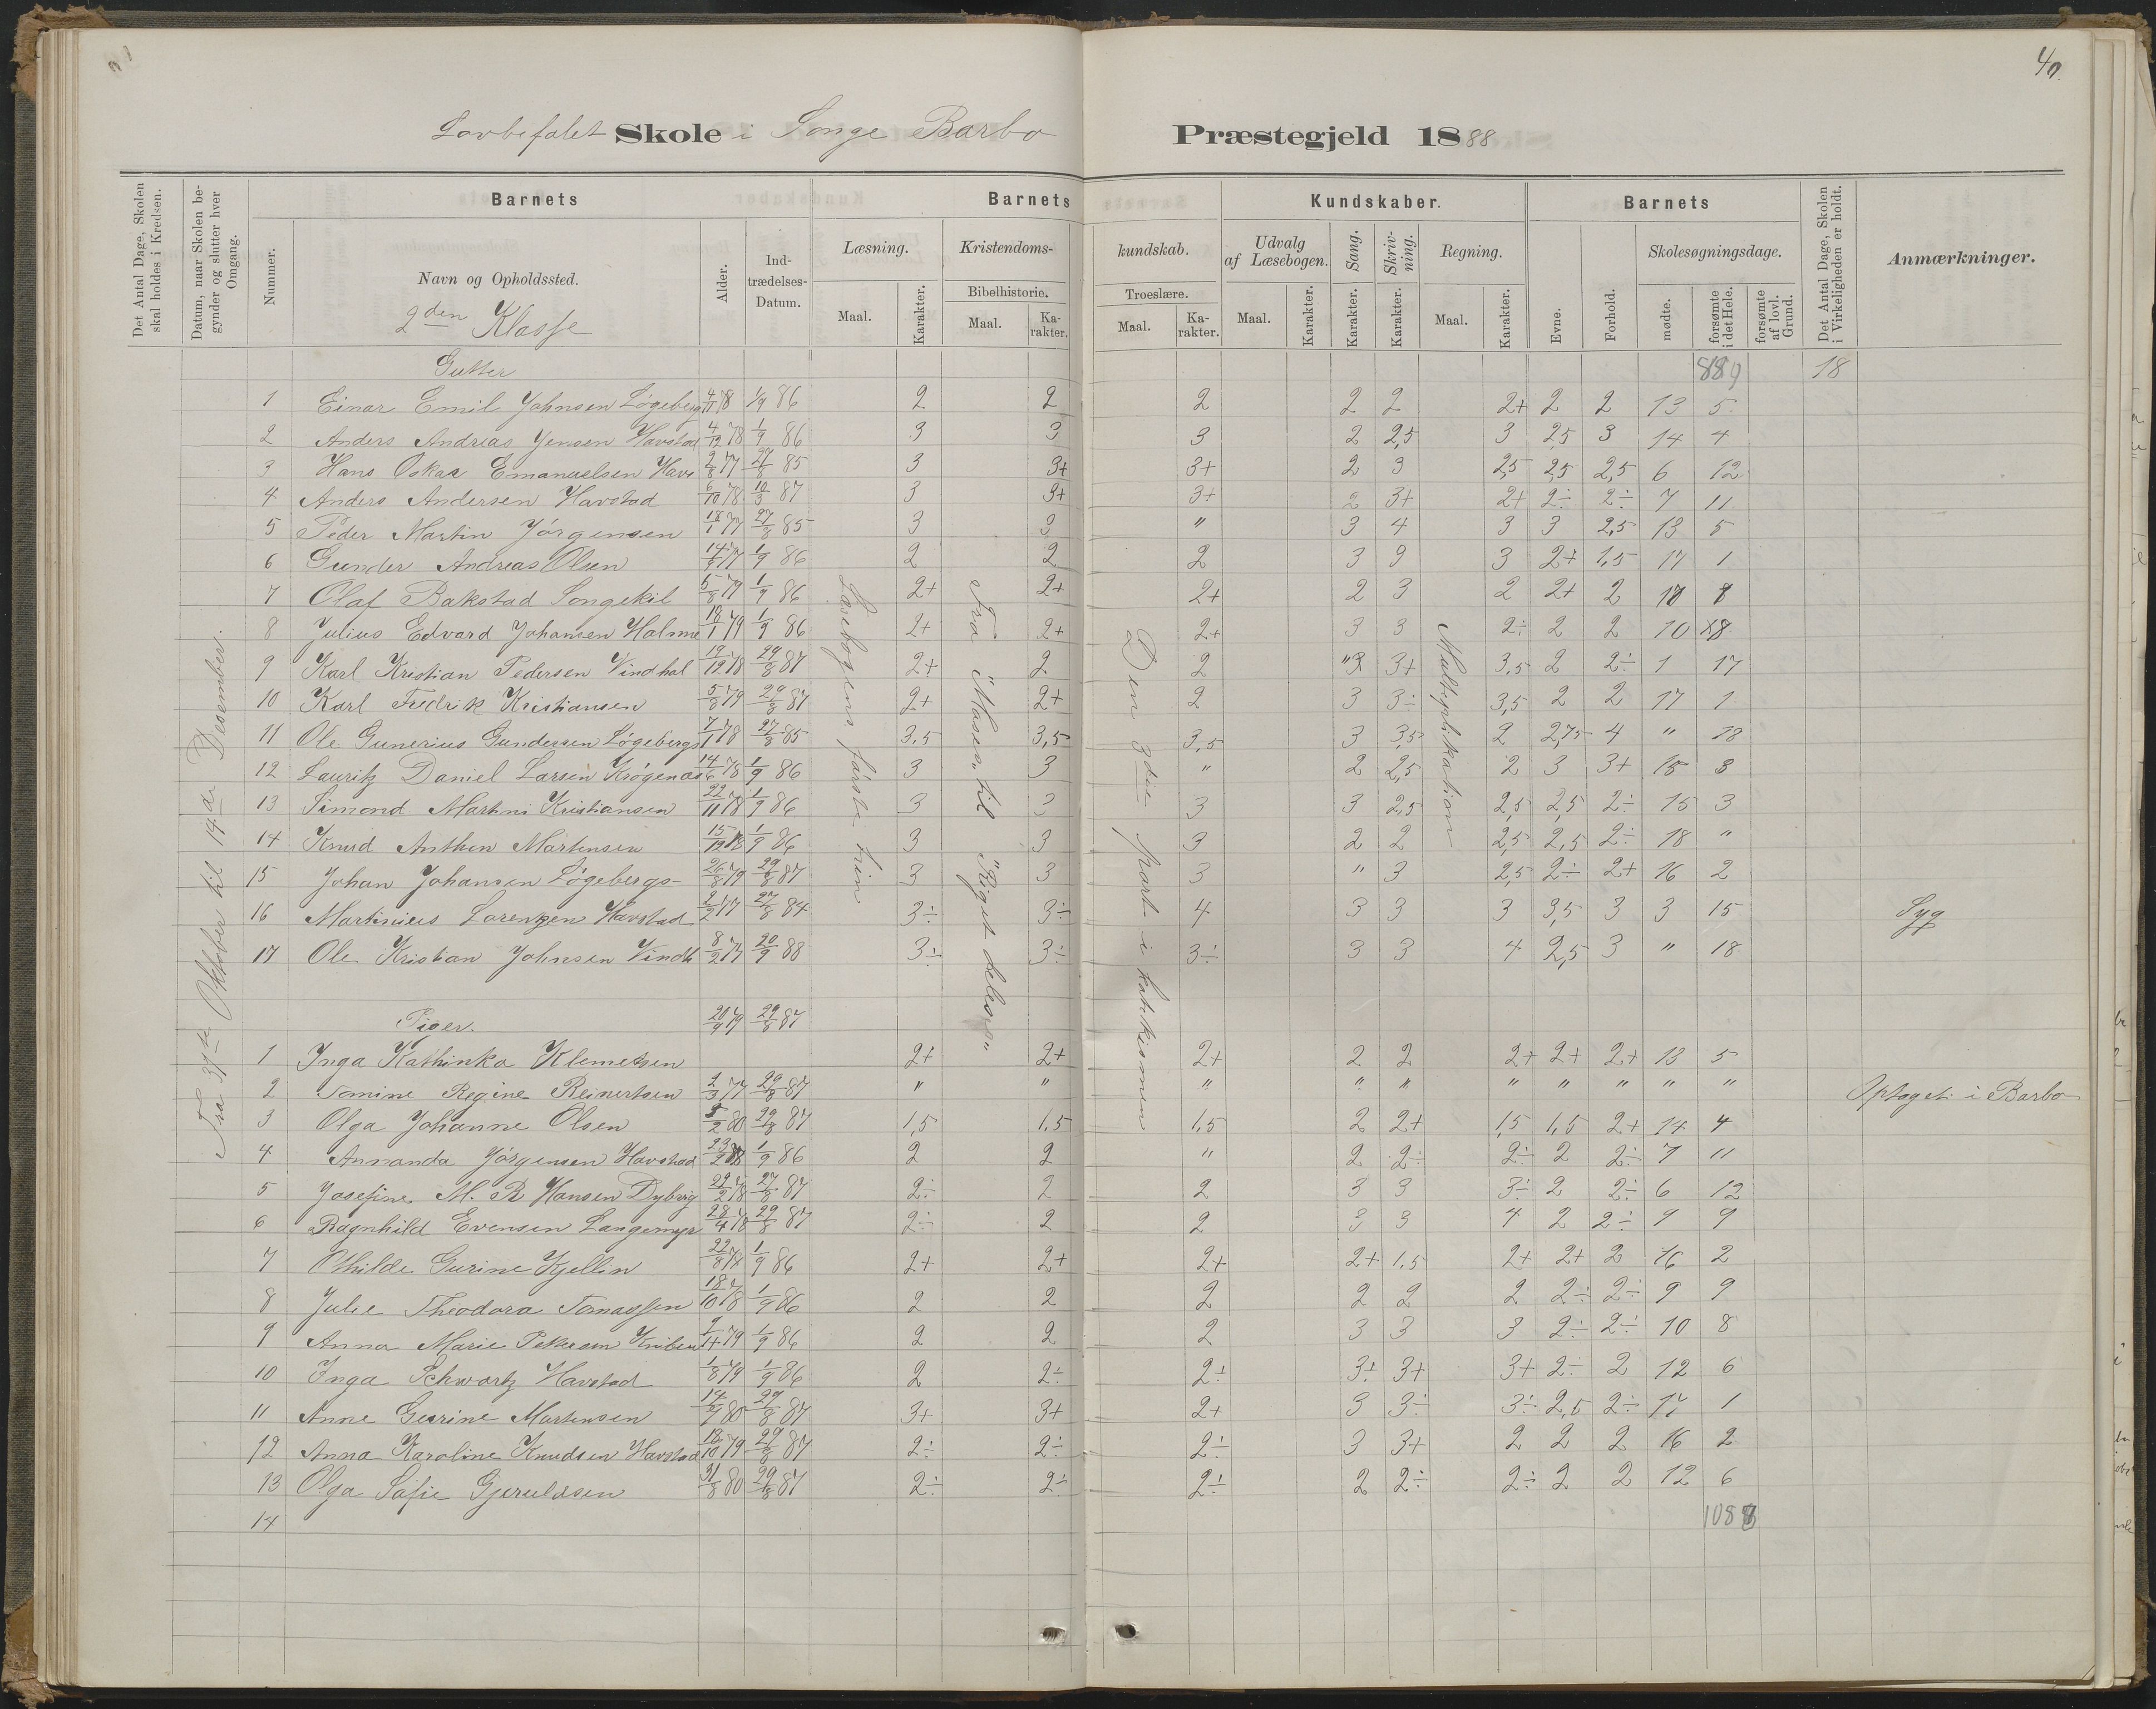 40
Lovbefalet Skole i Songe Barbo Præstegjeld 1888
Det Antal Dage, Skolen skal holdes i Kredsen.
Datum, naar Skolen begynder og slutter hver Omgang.
Barnets
Nummer.
Navn og Opholdssted.
2den Klasse
Alder.
Indtrædelses-Datum.
Barnets Kundskaber.
Læsning.
Maal.
Karakter.
Kristendomskundskab.
Bibelhistorie.
Maal.
Karakter.
Troeslære.
Maal.
Karakter.
Udvalg af Læsebogen.
Maal.
Karakter.
Sang.
Karakter.
Skrivning.
Karakter.
Regning.
Maal.
Karakter.
Barnets
Evne.
Forhold.
Skolesøgningsdage.
mødte.
forsømte i det Hele.
forsømte af lovl. Grund.
Det Antal Dage, Skolen i Virkeligheden er holdt.
Anmærkninger.
Fra 31te Oktober til 14de Desember.
Læsebogens første trin
Fra "Moses" til "Riget deles"
Den 3die part i katekismen
Multiplikation
Gutter 18
1 Einar Emil Johnsen Løgeberg 4/11 78 1/9 86 2 2 2 2 2 2+ 2 2 13 5
2 Anders Andreas Jensen Havstad 4/12 78 1/9 86 3 3 3 2 2,5 3 2,5 3 14 4
3 Hans Oskar Emanuelsen Havs 2/8 77 27/8 85 3 3+ 3+ 2 3 2,5 2,5 2,5 6 12
4 Anders Andersen Havstad 6/10 78 10/3 87 3 3+ 3+ 2 3+ 2+ 2÷ 2÷ 7 11
5 Peder Martin Jørgensen 18/1 77 27/8 85 3 3 " 3 4 3 3 2,5 13 5
6 Gunder Andreas Olsen 77 1/9 86 2 2 2 3 3 3 2+ 1,5 17 1
7 Olaf Bakstad Songekil 5/8 79 1/9 86 2+ 2+ 2+ 2 3 2 2+ 2
8 Julius Edvard Johansen Holme 18/1 79 1/9 86 2+ 2+ 2+ 3 3 2÷ 2 2 10 8
9 Karl Kristian Pedersen Vindhol 19/12 78 29/8 87 2+ 2 2 " 3+ 3,5 2 2÷ 1 17
10 Karl Fredrik Kristiansen 5/8 79 29/8 87 2+ 2+ 2 3 3÷ 3,5 2 2 17 1
11 Ole Gunerius Gundersen Løgebergs 7/1 78 27/8 85 3,5 3,5 3,5 3 3,5 2 2,75 4 " 18
12 Lauritz Daniel Larsen Krøgenæs 14/6 78 1/9 86 3 3 " 2 2,5 2 3 3+ 15 3
13 Simond Martini Kristiansen 22/11 78 1/9 86 3 3 3 3 2,5 2,5 2,5 2÷ 15 3
14 Knud Anthon Martensen 15/12 78 1/9 86 3 3 3 2 2 2,5 2,5 2÷ 18 "
15 Johan Johansen Løgebergs- 26/8 79 29/8 87 3 3 3 " 3 2,5 2÷ 2+ 16 2
16 Martinius Lorenzen Havstad 2/2 77 27/8 84 3÷ 3÷ 4 3 3 3 3,5 3 3 15 Syg
17 Ole Kristian Johnsen Vindh 8/2 77 20/9 88 3÷ 3÷ 3÷ 3 3 4 2,5 3 " 18
Piger. 20/9 79 29/8 87
1 Inga Kathinka Klemetsen 2+ 2+ 2+ 2 2 2+ 2+ 2+ 13 5
2 Tomine Regine Reinertsen 2/3 77 29/8 87 " " " " " " " " " " Optaget i Barbo
3 Olga Johanne Olsen 5/2 80 29/8 87 1,5 1,5 1,5 2 2+ 1,5 1,5 2+ 14 4
4 Annanda Jørgensen Havstad 23/2 78 1/9 86 2 2 " 2 2÷ 2÷ 2 2÷ 7 11
5 Josefine M. R Hansen Dyberg 22/2 78 27/8 87 2÷ 2 2 3 3 3÷ 2 2÷ 6 12
6 Ragnhild Evensen Langemyr 28/4 78 29/8 87 2÷ 2 2 3 3 4 2 2÷ 9 9
7 Othilde Gurine Kjellin 22/8 78 1/9 86 2+ 2+ 2+ 2+ 1,5 2+ 2+ 2 16 2
8 Julie Theodora Tomassen 18/10 78 1/9 86 2 2 2 2 2 2 2÷ 2÷ 9 9
9 Anna Marie Pettersen 79 1/9 86 2 2 2 3 3 3 2÷ 2÷ 10 8
10 Inga Schwartz Havstad 1/8 79 1/9 86 2 2÷ 2÷ 3÷ 3+ 3+ 2÷ 2 12 6
11 Anne Gurine Martensen 80 29/8 87 3+ 3+ 2+ 3 3÷ 3÷ 2,5 2÷ 17 1
12 Anna Karoline Knudsen Havstad 18/10 79 29/8 87 2÷ 2÷ 2÷ 3 3+ 2 2 2 16 2
13 Olga Sofie Gjeruldsen 31/8 80 29/8 87 2÷ 2÷ 2÷ 2 2÷ 2÷ 2 2 12 6
14